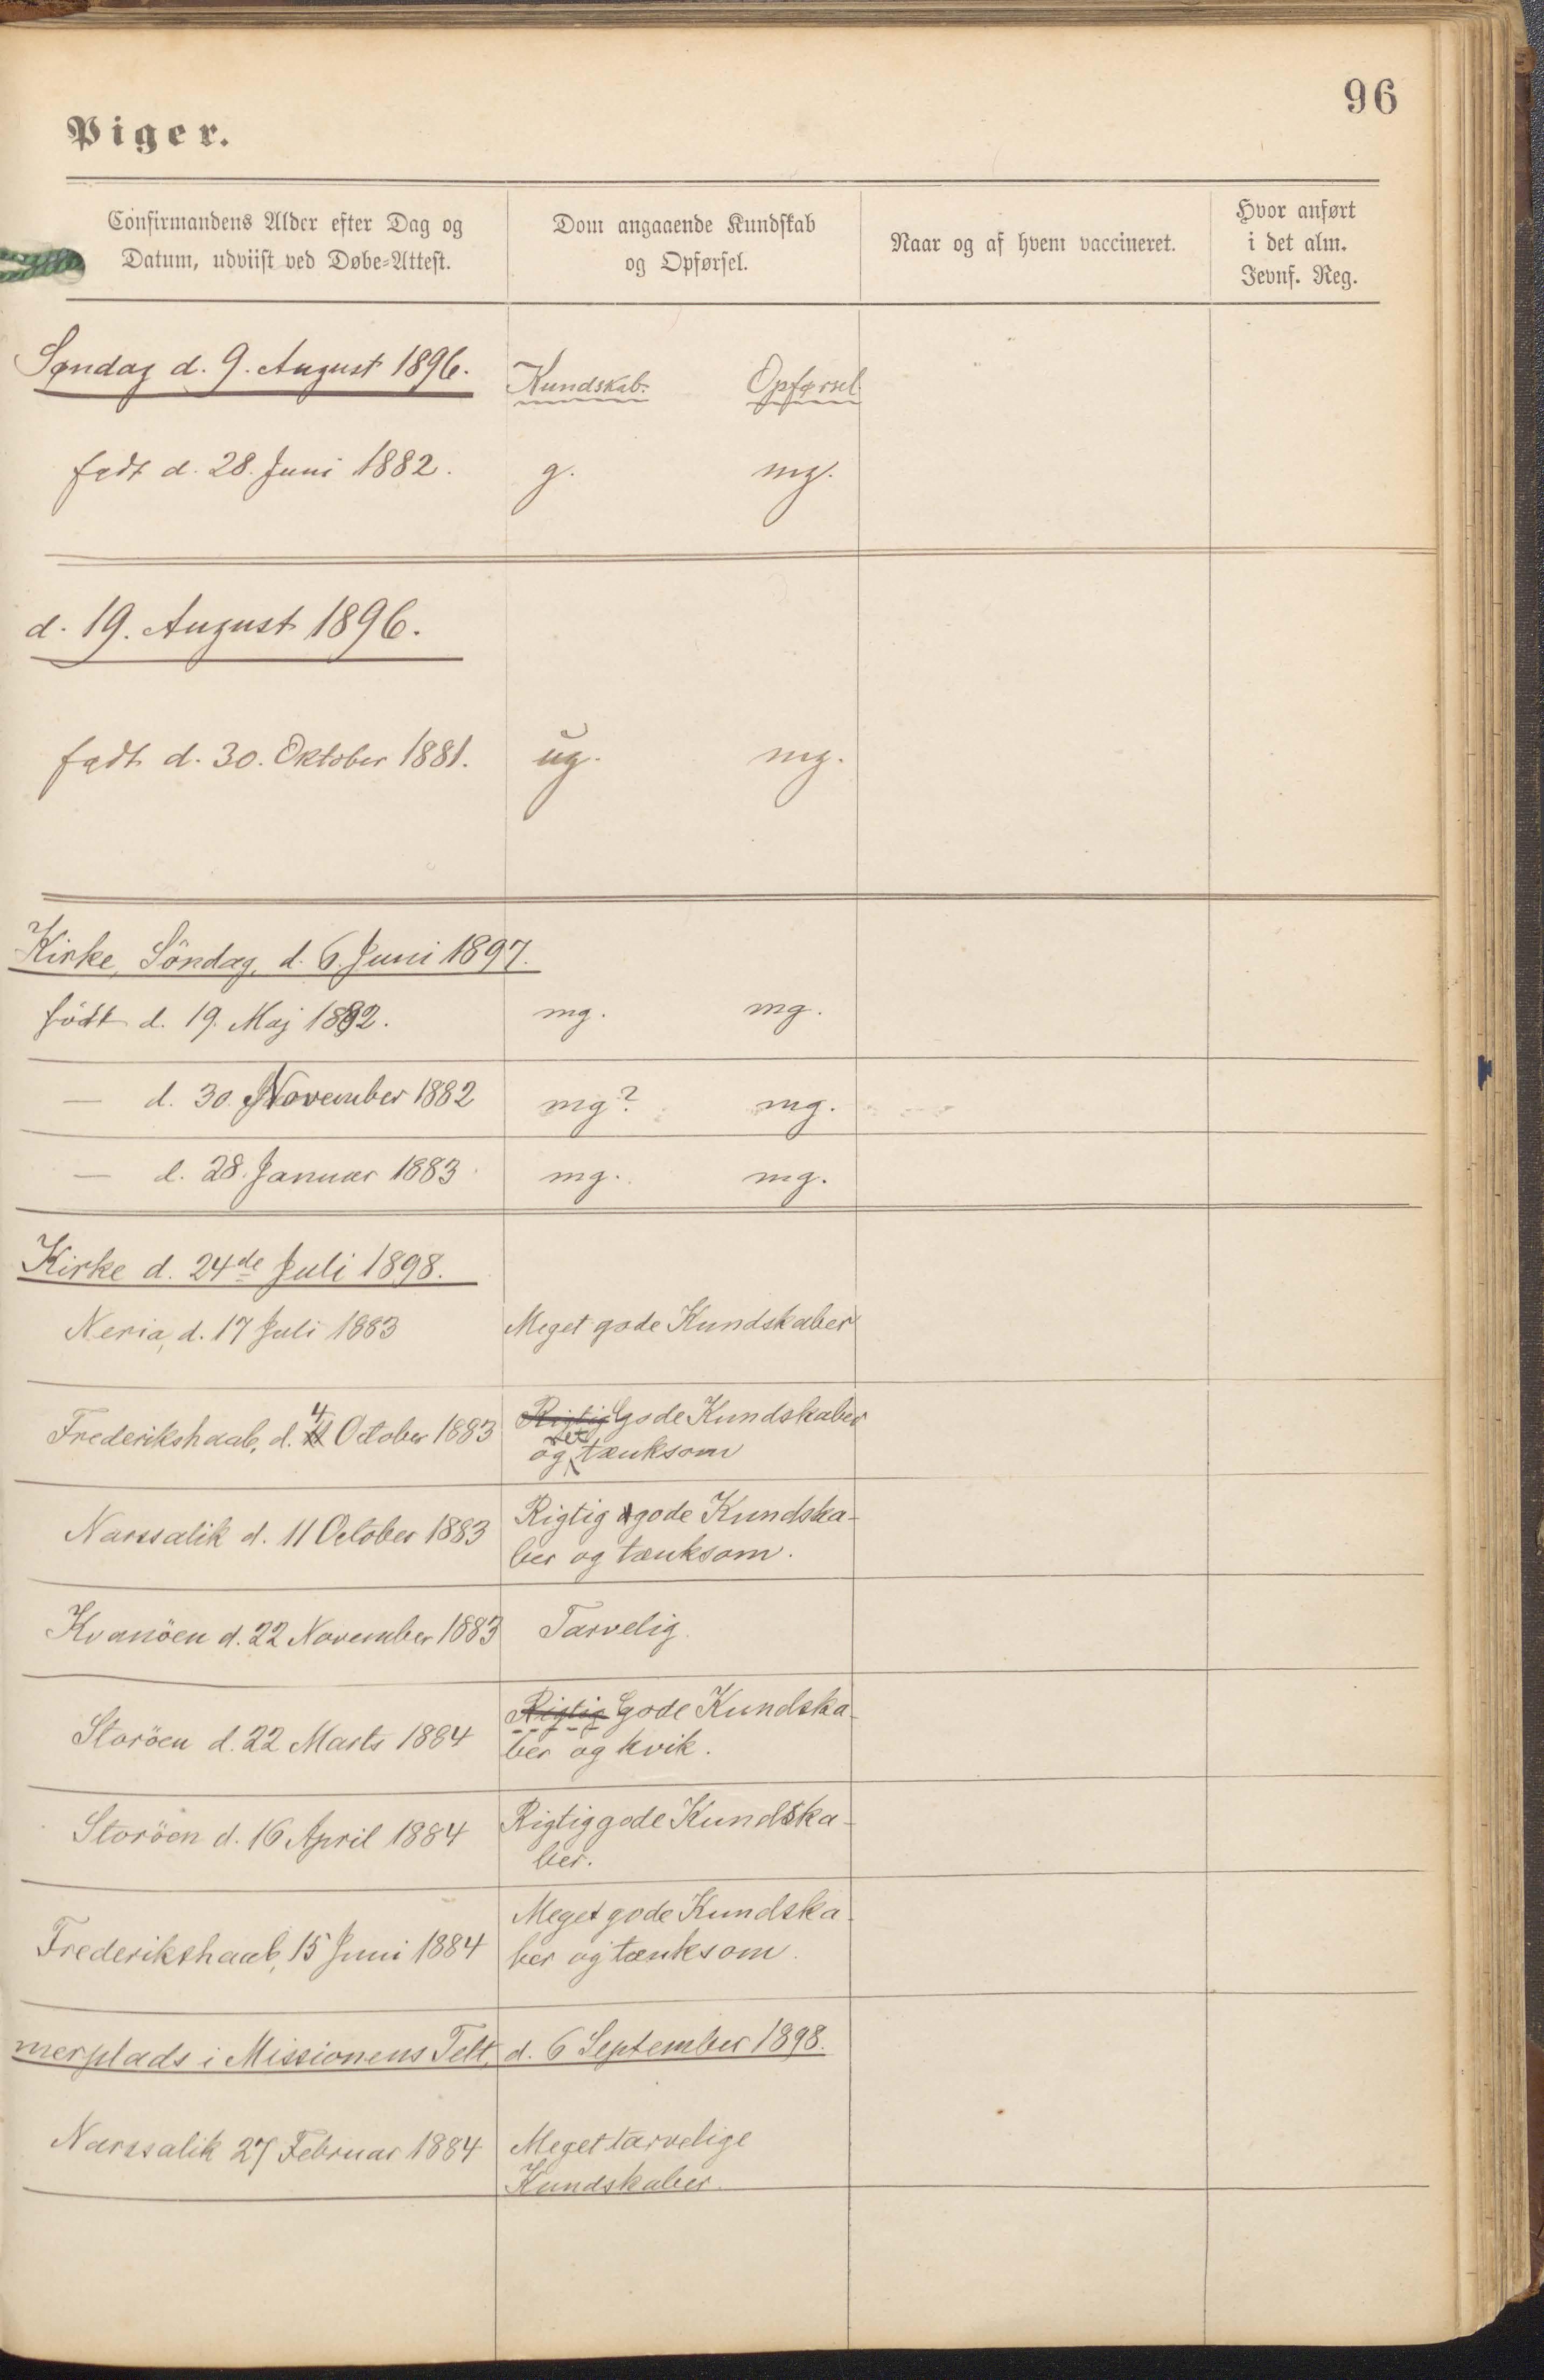 96
Piger.
Confirmandens Alder efter Dag og
Datum, udviist ved Døbe-Attest.
Dom angaaende Kundskab
og Opførsel.
Naar og af hvem vaccineret.
Hvor anført
i det alm.
Jevnf. Reg.
Søndag d. 9. August 1896.
Kundskab. Opførsel
født d. 28. Juni 1882. g. mg.
d. 19. August 1896.
født d. 30. Oktober 1881. ug. mg.
Kirke, Söndag, d. 6. Juni 1897.
födt d. 19. Maj 1882. mg. mg.
— d. 30. November 1882 mg? mg.
— d. 28. Januar 1883. mg. mg.
Kirke d. 24de Juli 1898.
Neria, d. 17 Juli 1883 Meget gode Kundskaber
Frederikshaab, d. 4 October 1883
Rigtig Gode Kundskaber
og ret tænksom
Narssalik d. 11 October 1883
Rigtig gode Kundska-
ber og tænksom.
Kvanöen d. 22 November 1883 Tarvelig.
Storöen d. 22 Marts 1884
Rigtig Gode Kundska-
ber og kvik.
Storöen d. 16 April 1884
Rigtig gode Kundska-
ber.
Frederikshaab, 15 Juni 1884
Meget gode Kundska-
ber og tænksom.
merplads i Missionens Telt, d. 6 September 1898.
Narssalik 27 Februar 1884
Meget tarvelige
Kundskaber.